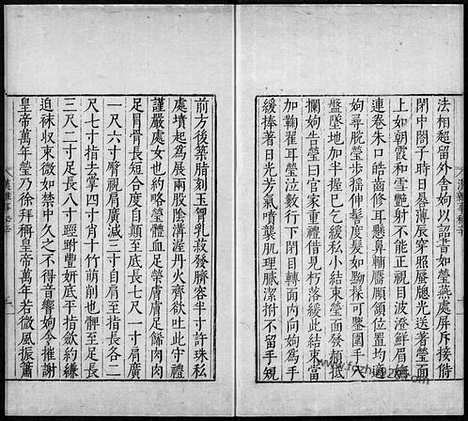 法相超留外舍姁以詔書如瑩燕處屏斥接侍
閉中閤子時日晷薄辰穿照蜃牕光送著瑩面
上如朝霞和雪艷射不能正視目波澄鮮眉嫵
連卷朱口皓齒修耳懸鼻輔靨頤頷位置均適
姁尋脫瑩步搖伸髻度髮如黝髹可鑑圍手八
盤墜地加半握已乞緩私小結束瑩面發赬抵
攔姁告瑩曰官家重禮借見朽落緩此結束當
加鞠翟耳瑩泣數行下閉目轉面內向姁為手
緩捧著日光芳氣噴襲肌理膩潔拊不留手規
前方後築脂刻玉胸乳菽發臍容半寸許珠私
處墳起為展兩股陰溝渥丹火齊欲吐此守禮
謹嚴處女也約略瑩體血足榮膚膚足飾肉肉
足冒骨長短合度自顛至底長七尺一寸肩廣
一尺六寸臀視肩廣減三寸自肩至指長各二
尺七寸指去掌四寸肖十竹萌削也髀至足長
三尺二寸足長八寸脛跗豐妍底平指斂約縑
迫袜收束微如禁中久之不得音響姁令催謝
皇帝萬年瑩乃徐拜稱皇帝萬年若微風振簫